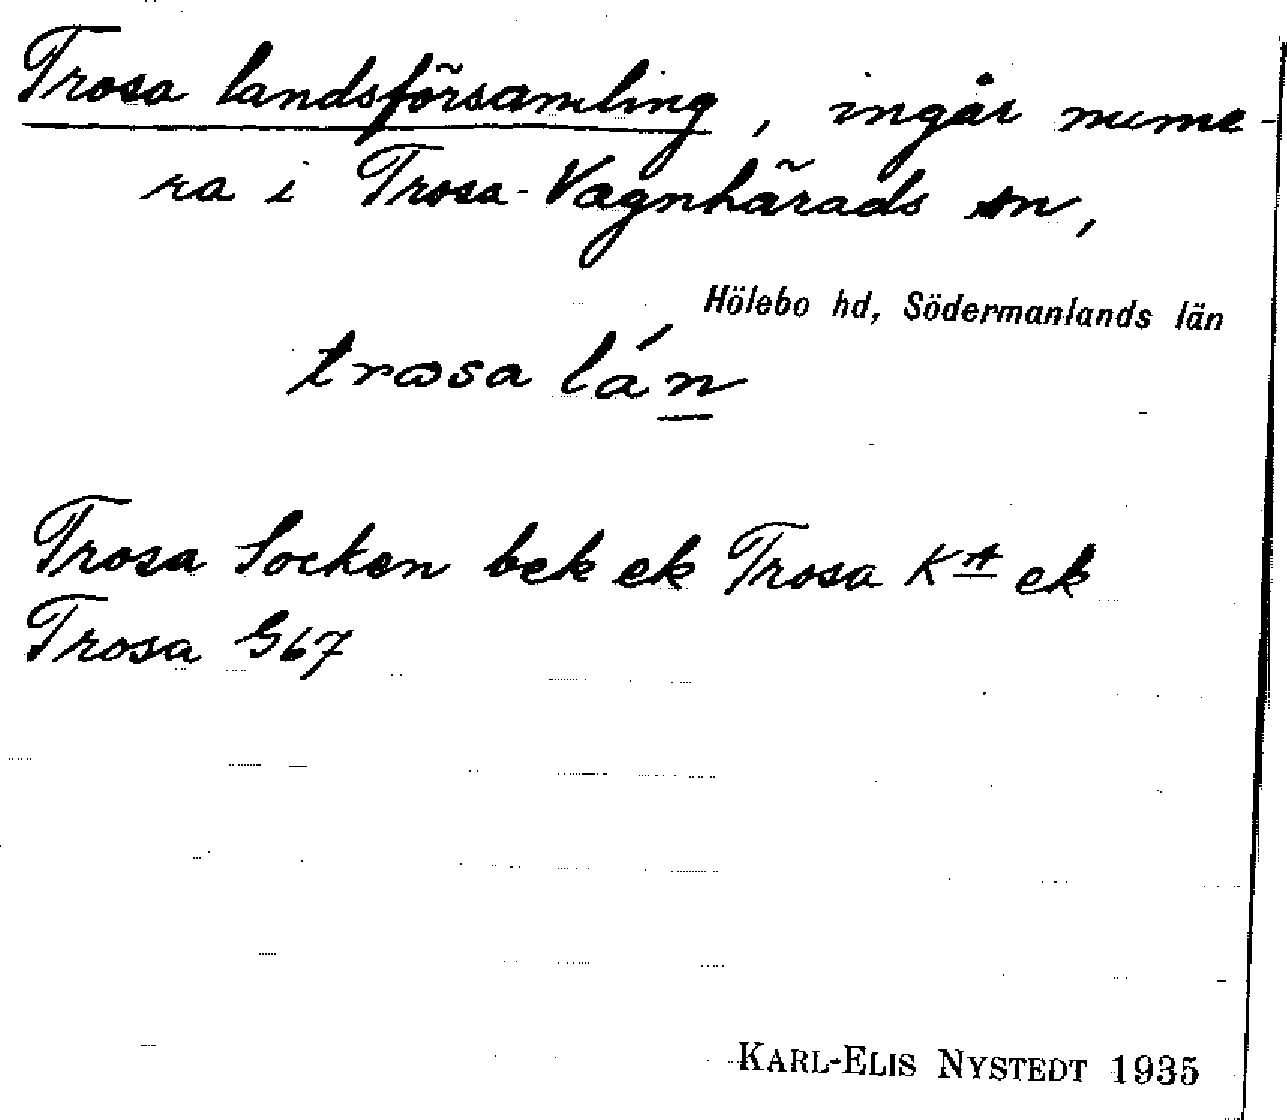 Trosa landsförsamling, ingår nume-
ra i Trosa-Vagnhärads sn,
Hölebo hd, Södermanlands län
trosa lán
Trosa Socken bek ek Trosa KA ek
Trosa G67
KARL-ELIS NYSTEDT 1935